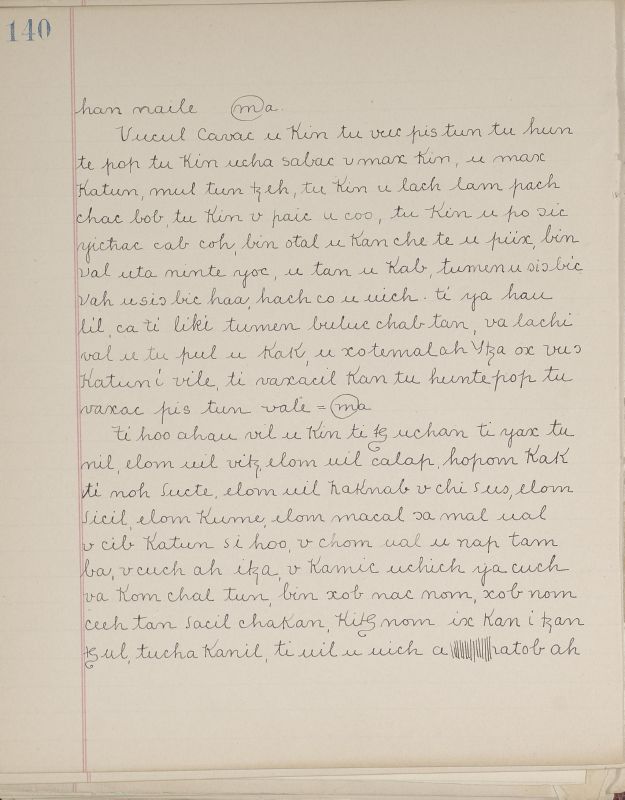 140
han naile ma.
Vucul Cavac u Kin tu vuc pis tun tu hun
te pop tu Kin ucha sabac v max Kin, u max
Katun, mul tun ꜩeh, tu Kin u lach lam pach
chac bob, tu Kin v paic u coo, tu Kin u po ɔic
yichac cab coh, bin otal u Kan che te u piix, bin
val uta ninte yoc, u tan u Kab, tumen u sis bic
vah u sis bic haa, hach co u uich. ti ya hau
lil, ca ti liki tumen buluc chab tan, va lachi
val u tu pul u KaK, u xotemal ah Yꜩa ox vuɔ
Katuni vile, ti vaxacil Kan tu huntepop tu
vaxac pis tun vale = ma
ti hoo ahau vil u Kin te ꜩ uchan ti yax tu
nil, elom uil vitꜩ, elom uil calap, hopom KaK
ti noh Sucte, elom uil haKnab v chi sus, elom
Sicil, elom Kume, elom macal ɔa mal ual
v cib Katun si hoo, v chom ual u nap tam
ba, v cuch ah iꜩa, v Kamic uchich ya cuch
va Kom chal tun, bin xob nac nom, xob nom
ceeh tan Sacil chaKan, Kitꜩ nom ix Kan i ꜩan
ꜩul, tucha Kanil, ti uil u uich a ratob ah